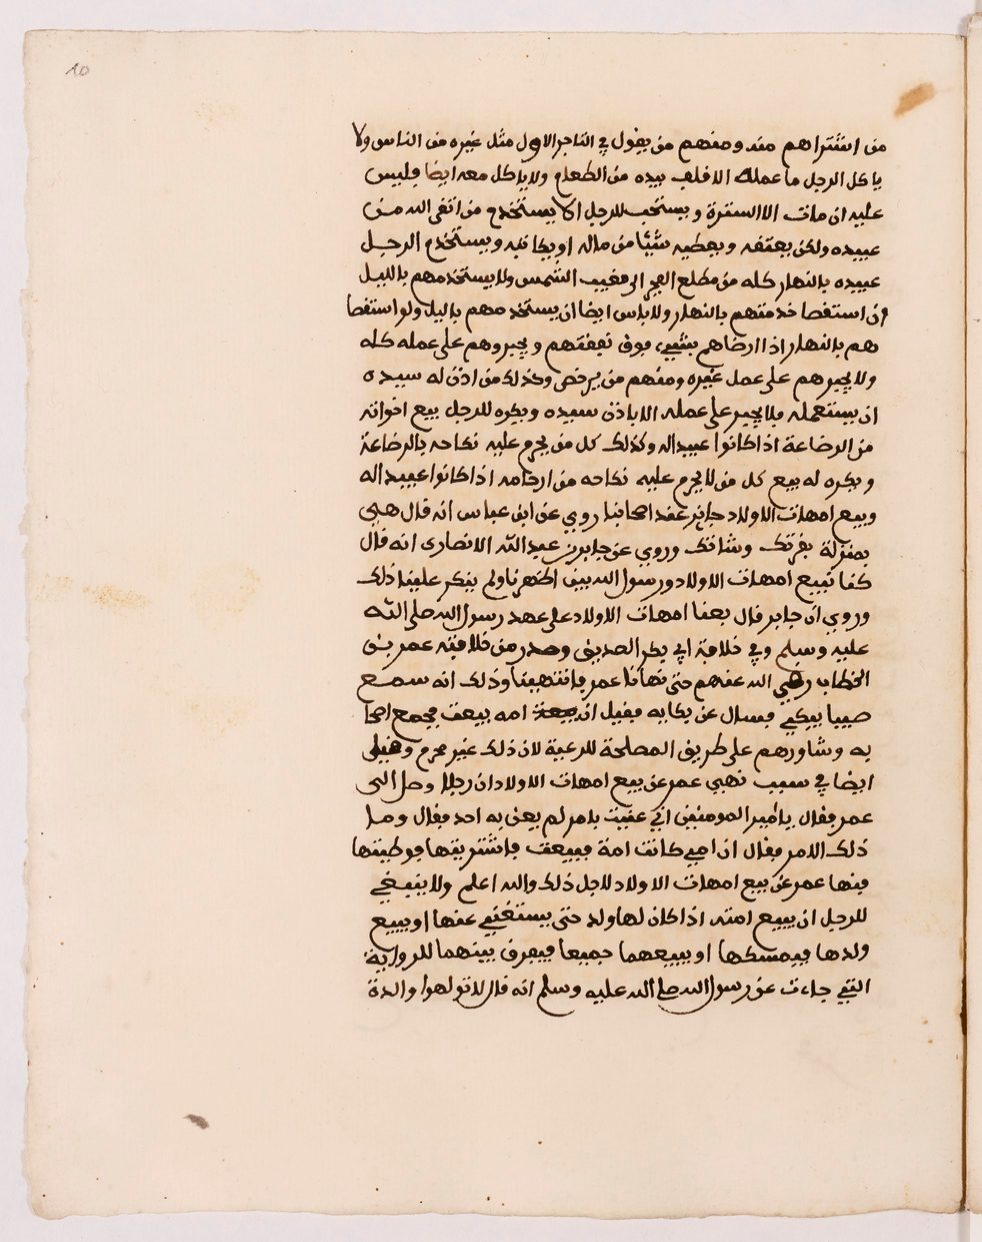 من اشتراهم منه ومنهم من يقول في التاجر الاول مثل غيره من الناس ولا
ياكل الرجل ما عمله الاقلف بيده من الطعام ولا ياكل معه ايضا وليس
عليه ان مات الا السترة ويستحب للرجل الا يستخدم من اتقى الله من
عبيده ولكن يعتقه ويعطيه شيئا من ماله او يكاتبه ويستخدم الرجل
عبيده بالنهار كله من مطلع الفجر الى مغيب الشمس ولا يستخدمهم بالليل
ان استقصا خدمتهم بالنهار ولا باس ايضا ان يستخدمهم باليل ولو استقصا
هم بالنهار اذا ارضاهم بشيء فوق نفقتهم ويجبروهم على عمله كله
ولا يجبرهم على عمل غيره ومنهم من يرخص وكذلك من اذن له سيده
ان يستعمله فلا يجبر على عمله الا باذن سيده ويكره للرجل بيع اخوانه
من الرضاعة اذا كانوا عبيد اله وكذلك كل من يحرم عليه نكاحه بالرضاعة
ويكره له بيع كل من لا يحرم عليه نكاحه من ارحامه اذا كانوا عبيد اله
وبيع امهات الاولاد جايز عند اصحابنا روي عن ابن عباس انه قال هي
بمنزلة بقرتك وشاتك وروي عن جابر بن عبد الله الانصارى انه قال
كنا نبيع امهات الاولاد ورسول الله بين اظهرنا ولم ينكر علينا ذلك
وروي ان جابر قال بعنا امهات الاولاد على عهد رسول الله صلى الله
عليه وسلم وفي خلافة ابي بكر الصديق وصدر من خلافته عمر بن
الخطاب رضي الله عنهم حتى نهانا عمر فانتهينا وذلك انه سمع
صبيا يبكي فسال عن بكايه فقيل ان امه بيعت فجمع اصحا
به وشاورهم على طريق المصلحة للرعية لان ذلك غير محرم وقيل
ايضا في سبب نهي عمر عن بيع امهات الاولاد ان رجلا وصل الى
عمر فقال يا امير المومنين اني عنيت بامر لم يعن به احد فقال وما
ذلك الامر فقال ان امي كانت امة فبيعت فاشتريتها فوطيتها
فنها عمر عن بيع امهات الاولاد لاجل ذلك والله اعلم ولا ينبغي
للرجل ان يبيع امته اذا كان لها ولد حتى يستغني عنها او يبيع
ولدها فيمسكها او يبيعهما جميعا فيفرق بينهما للرواية
التي جاءت عن رسول الله صلى الله عليه وسلم انه قال لا تولهوا والدة